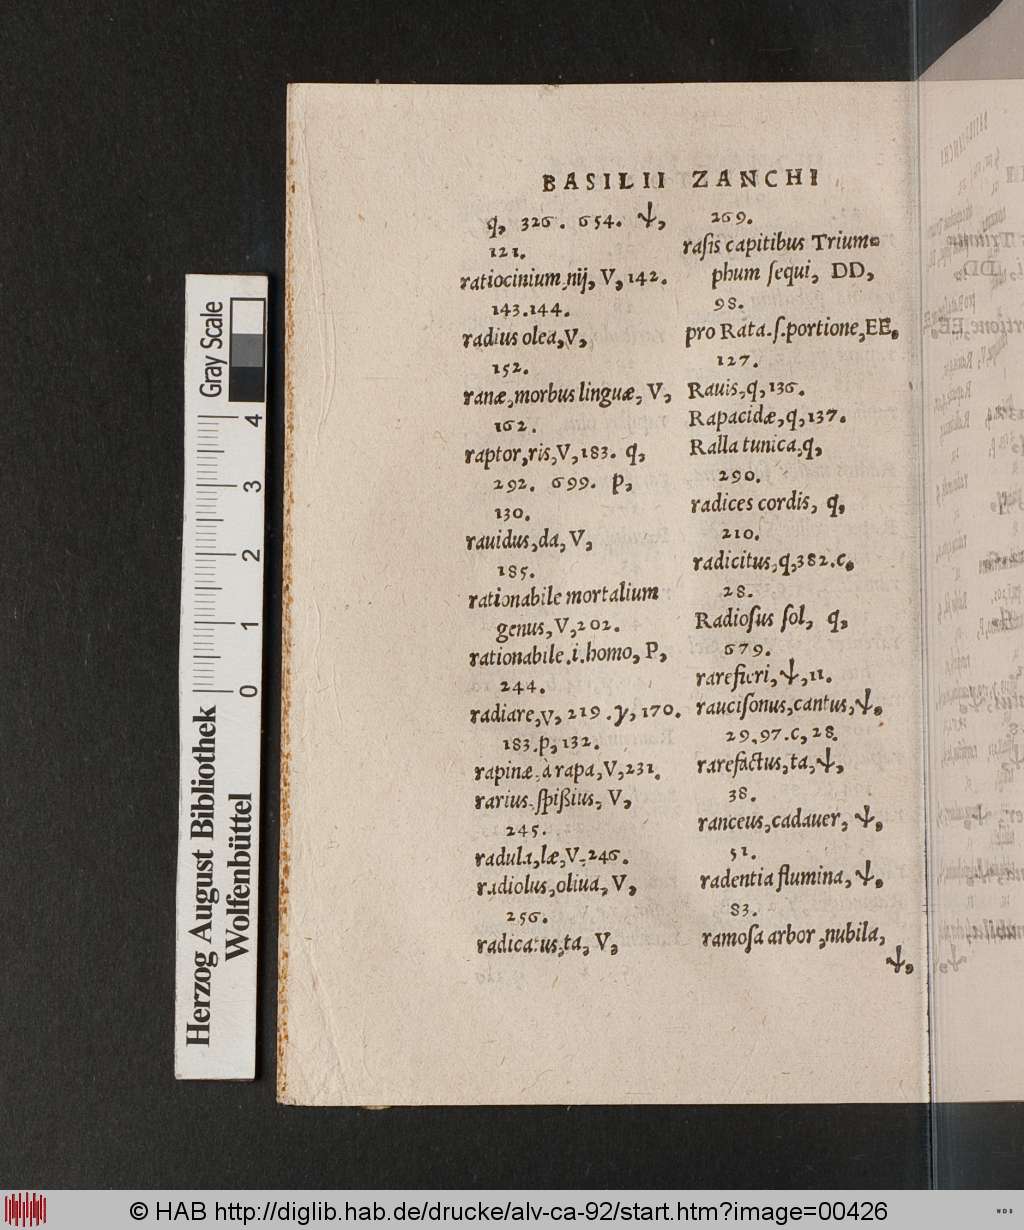 BASILII ZANCHI
q, 326. 654. ψ,
121.
ratiocinium.nij, V, 142.
143.144.
radius olea,V,
152.
ranæ,morbus linguæ, V,
162.
raptor,ris,V,183. q,
292. 699. p,
130.
rauidus,da, V,
185.
rationabile mortalium
genus,V,202.
rationabile.i.homo, P,
244.
radiare,V, 219.γ,170.
183.p,132.
rapinæ.à rapa,V,231.
rarius.ſpißius, V,
245.
radula,læ,V.246.
radiolus,oliua, V,
256.
radicatus,ta, V,
269.
raſis capitibus Trium-
phum ſequi, DD,
98.
pro Rata.ſ.portione,EE,
127.
Rauis,q,136.
Rapacidæ,q,137.
Ralla tunica,q,
290.
radices cordis, q,
210.
radicitus,q,382.c,
28.
Radioſus ſol, q,
679.
rarefieri,ψ,11.
rauciſonus,cantus,ψ,
29.97.c,28.
rarefactus,ta,ψ,
38.
ranceus,cadauer, ψ,
51.
radentia flumina, ψ,
83.
ramoſa arbor,nubila,
ψ,
Gray Scale
0 1 2 3 4
Herzog August Bibliothek
Wolfenbüttel
© HAB http://diglib.hab.de/drucke/alv-ca-92/start.htm?image=00426